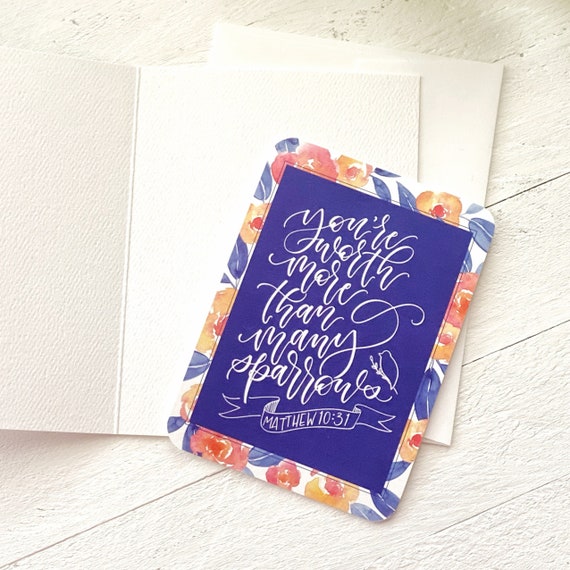 you're
worth
more
than
many
sparrows
MATTHEW 10:31